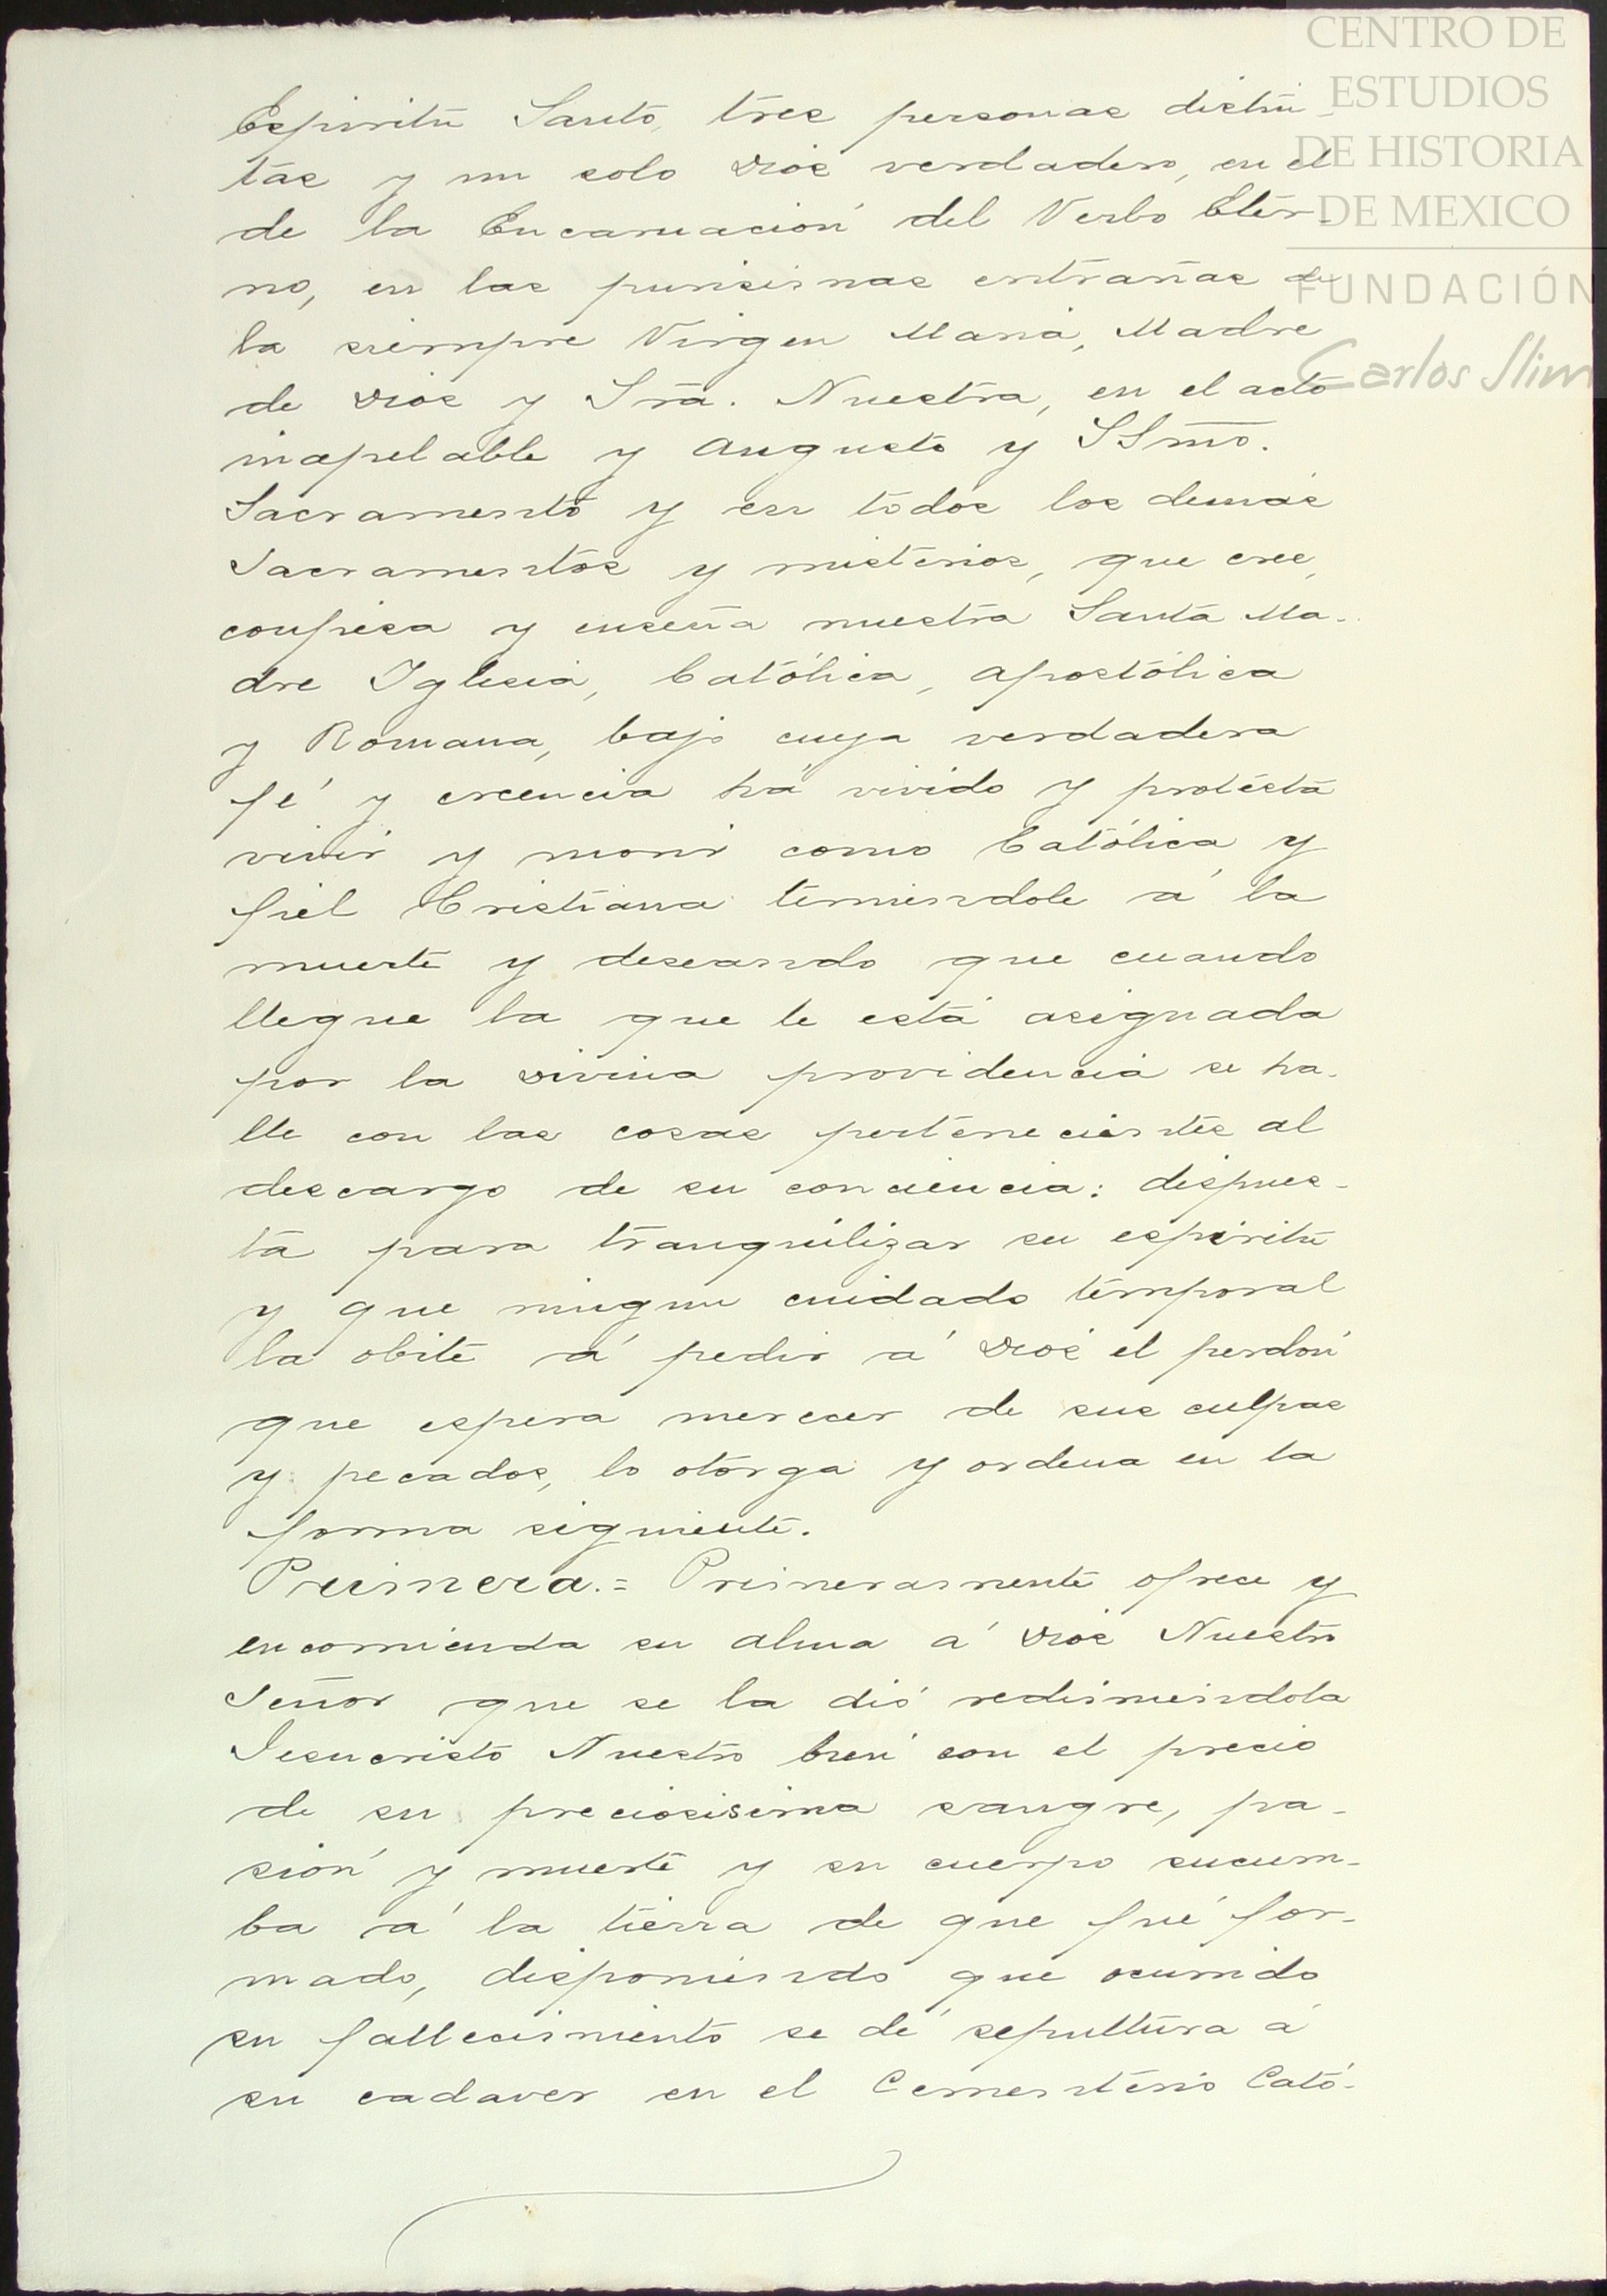 CENTRO DE
ESTUDIOS
DE HISTORIA
DE MEXICO
FUNDACIÓN
Carlos Slim
Espiritu Santo, tres personas distin-
tas y un solo Dios verdadero, en el
de la Encarnación del Verbo Eter-
no, en las purisimas entrañas de
la siempre Virgen Maria, Madre
de Dios y Sra. Nuestra, en el acto
inapelable y Augusto y SSmo.
Sacramento y en todos los demás
Sacramentos y misterios, que cree,
confiesa y enseña nuestra Santa Ma-
dre Iglesia, Católica, Apostólica
y Romana, bajo cuya verdadera
fé y creencia há vivido y protesta
vivir y morir como Católica y
fiel Cristiana temiendole á la
muerte y deseando que cuando
llegue la que le está asignada
por la Divina providencia se ha-
lle con las cosas pertenecientes al
descargo de su conciencia: dispues-
ta para tranquilizar su espiritu
y que ningun cuidado temporal
la obite á pedir á Dios el perdón
que espera merecer de sus culpas
y pecados, lo otorga y ordena en la
forma siguiente.
Primera.= Primeramente ofrece y
encomienda su alma á Dios Nuestro
Señor que se la dió redimiendola
Jesucristo Nuestro bien con el precio
de su preciosisima sangre, pa-
sión y muerte y su cuerpo sucum-
ba á la tierra de que fué for-
mado, disponiendo que ocurrido
su fallecimiento se dé sepultura á
su cadaver en el Cementerio Cató-